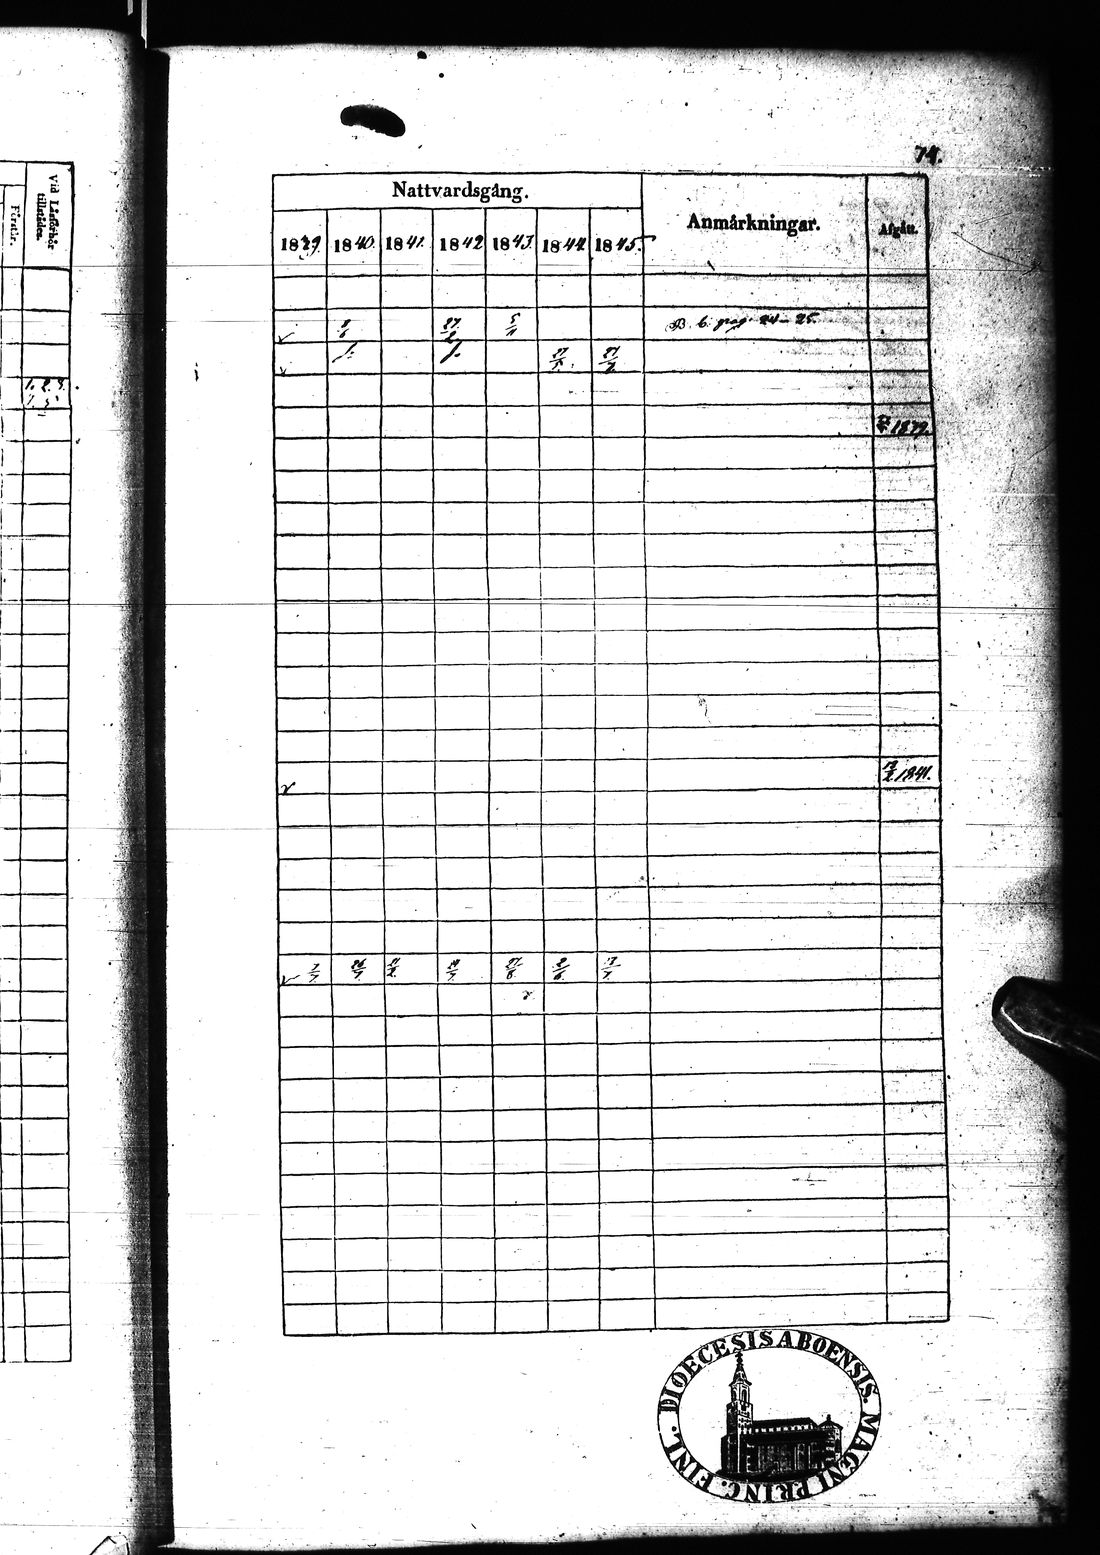 Vid Låsförhör tillstädes.
Förstår.
1. 2. 3.
74.
Nattvardsgång.
Anmårkningar.
Afgån.
1839 1840. 1841. 1842 1843. 1844 1845.
27/2 5/11 B. 6. pag. 24 - 25.
f. f. 27/7
1879.
1841.
7/7 26/7 21/2 10/7 27/6 2/6 13/7
DIOECESIS ABOENSIS. MAGNI PRINC. FINL.